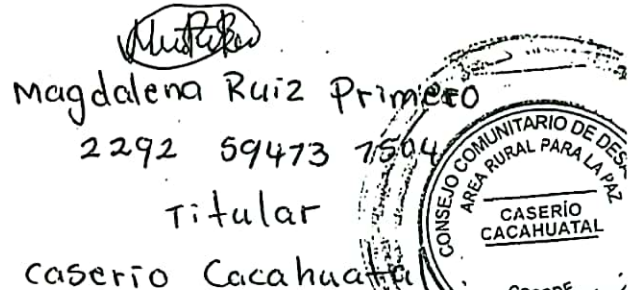 Magdalena Ruiz Primero
2292 59473 1504
Titular
caserio Cacahuatal
CONSEJO COMUNITARIO DE DESA
AREA RURAL PARA LA PAZ
CASERÍO
CACAHUATAL